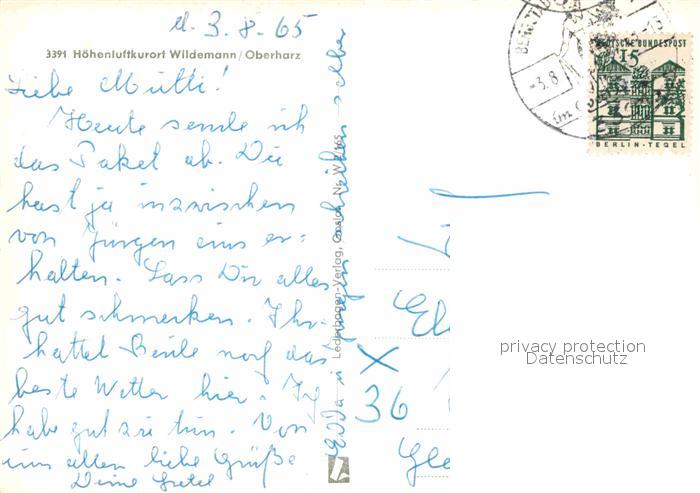 d. 3.8.65
3391 Höhenluftkurort Wildemann/Oberharz
Liebe Mutti!
Heute sende ich
das Paket ab. Du
hast ja inzwischen
von Jürgen eins er=
halten. Lass Dir alles
gut schmecken. Ihr
hattet Beide noch das
beste Wetter hier. Ich
habe gut zu tun. Von
uns allen liebe Grüße
Deine Gretel
schreiben selber
Lederbogen-Verlag, Goslar, Nr. W
X
36
DEUTSCHE BUNDESPOST
15
BERLIN-TEGEL
-3.8
privacy protection
Datenschutz